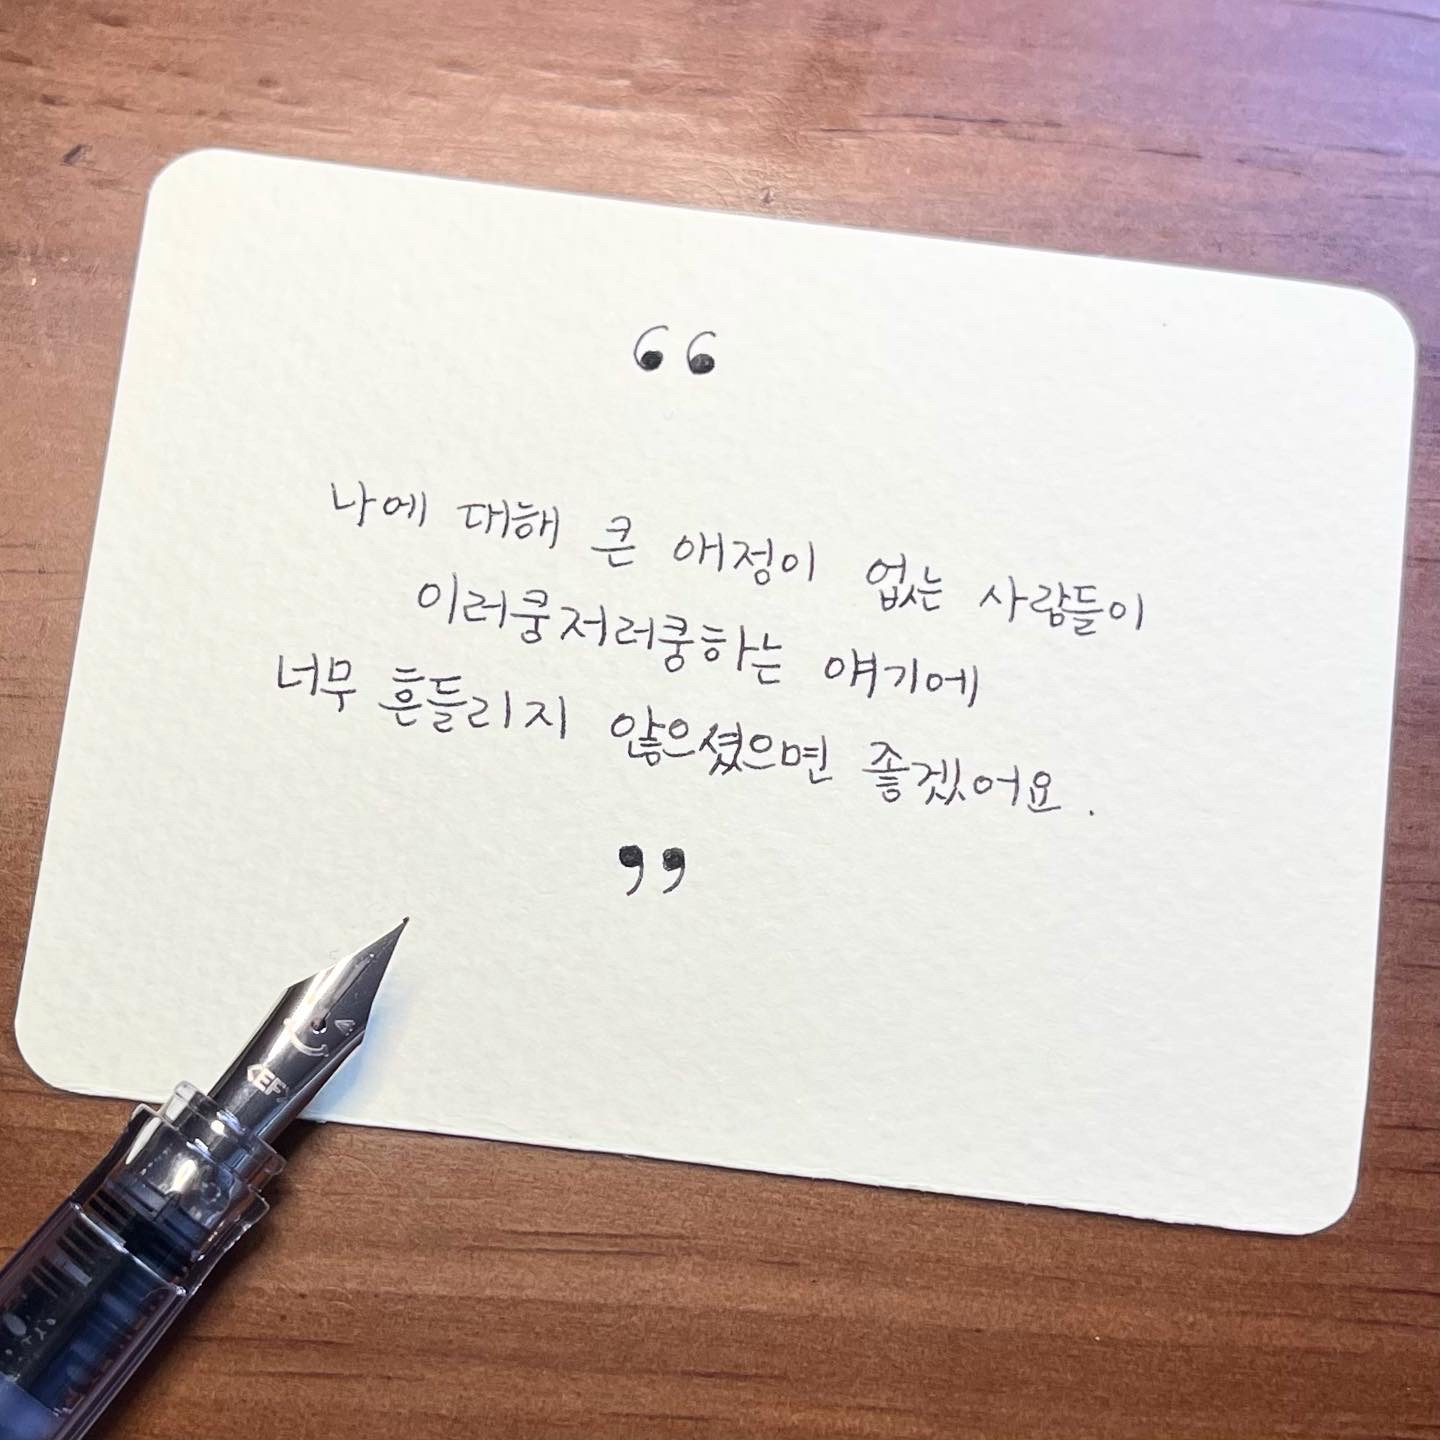 “
나에 대해 큰 애정이 없는 사람들이
이러쿵저러쿵하는 얘기에
너무 흔들리지 않으셨으면 좋겠어요.
”
<EF>